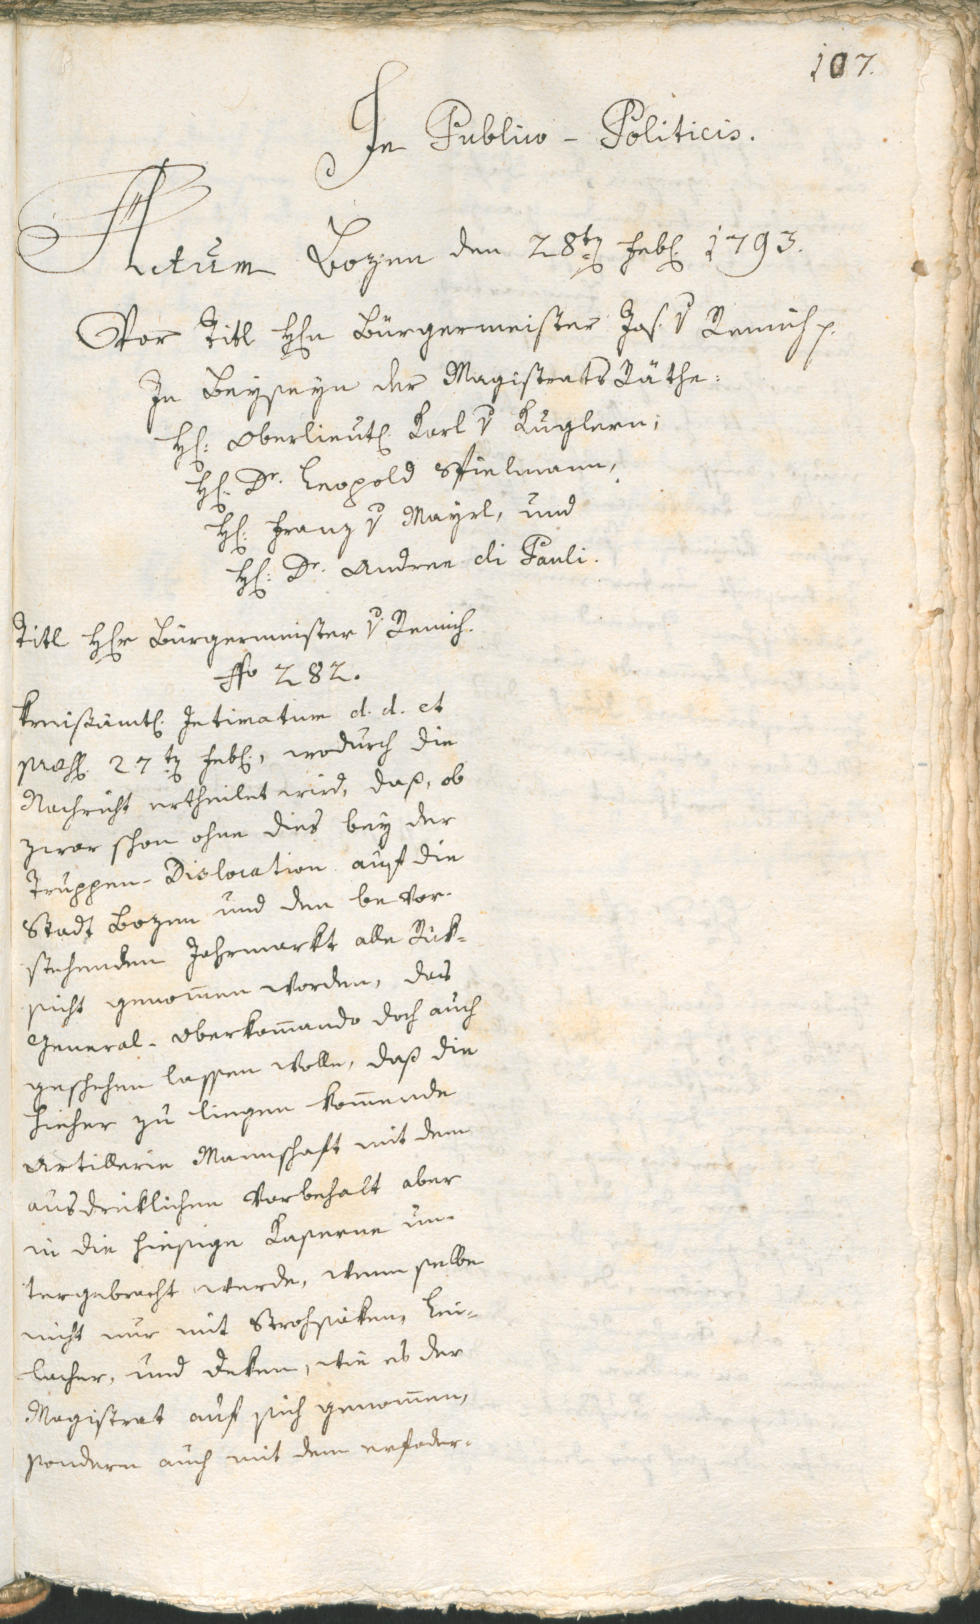 107.
In Publico - Politicis.
Actum Bozen den 28tn Febr. 1793.
Vor Titl Hrn Bürgermeister Jos. v Remich p.
In Beyseyn der Magistrats Räthe:
H: Oberlieut. Karl v Kuglern;
H. Dr. Leopold Spielmann,
H: Franz v Mayrl, und
H: Dr. Andree di Pauli.
Titl Hr Bürgermeister v Remich.
No 282.
Kreisämtl. Intimatum d. d. et
præs. 27tn Febr., wodurch die
Nachricht ertheilet wird, daß, ob
zwar schon ohne dies bey der
Truppen-Dislocation auf die
Stadt Bozen und den bevor-
stehenden Jahrmarkt alle Rük-
sicht genom̄en worden, das
General-Oberkom̄ando doch auch
geschehen lassen wolle, daß die
hieher zu liegen kom̄ende
Artillerie Mannschaft mit dem
ausdrüklichen Vorbehalt aber
in die hiesige Kaserne un-
tergebracht werde, wenn selbe
nicht nur mit Strohsäken, Lei-
lacher, und Deken, wie es der
Magistrat auf sich genom̄en,
sondern auch mit dem erfoder-